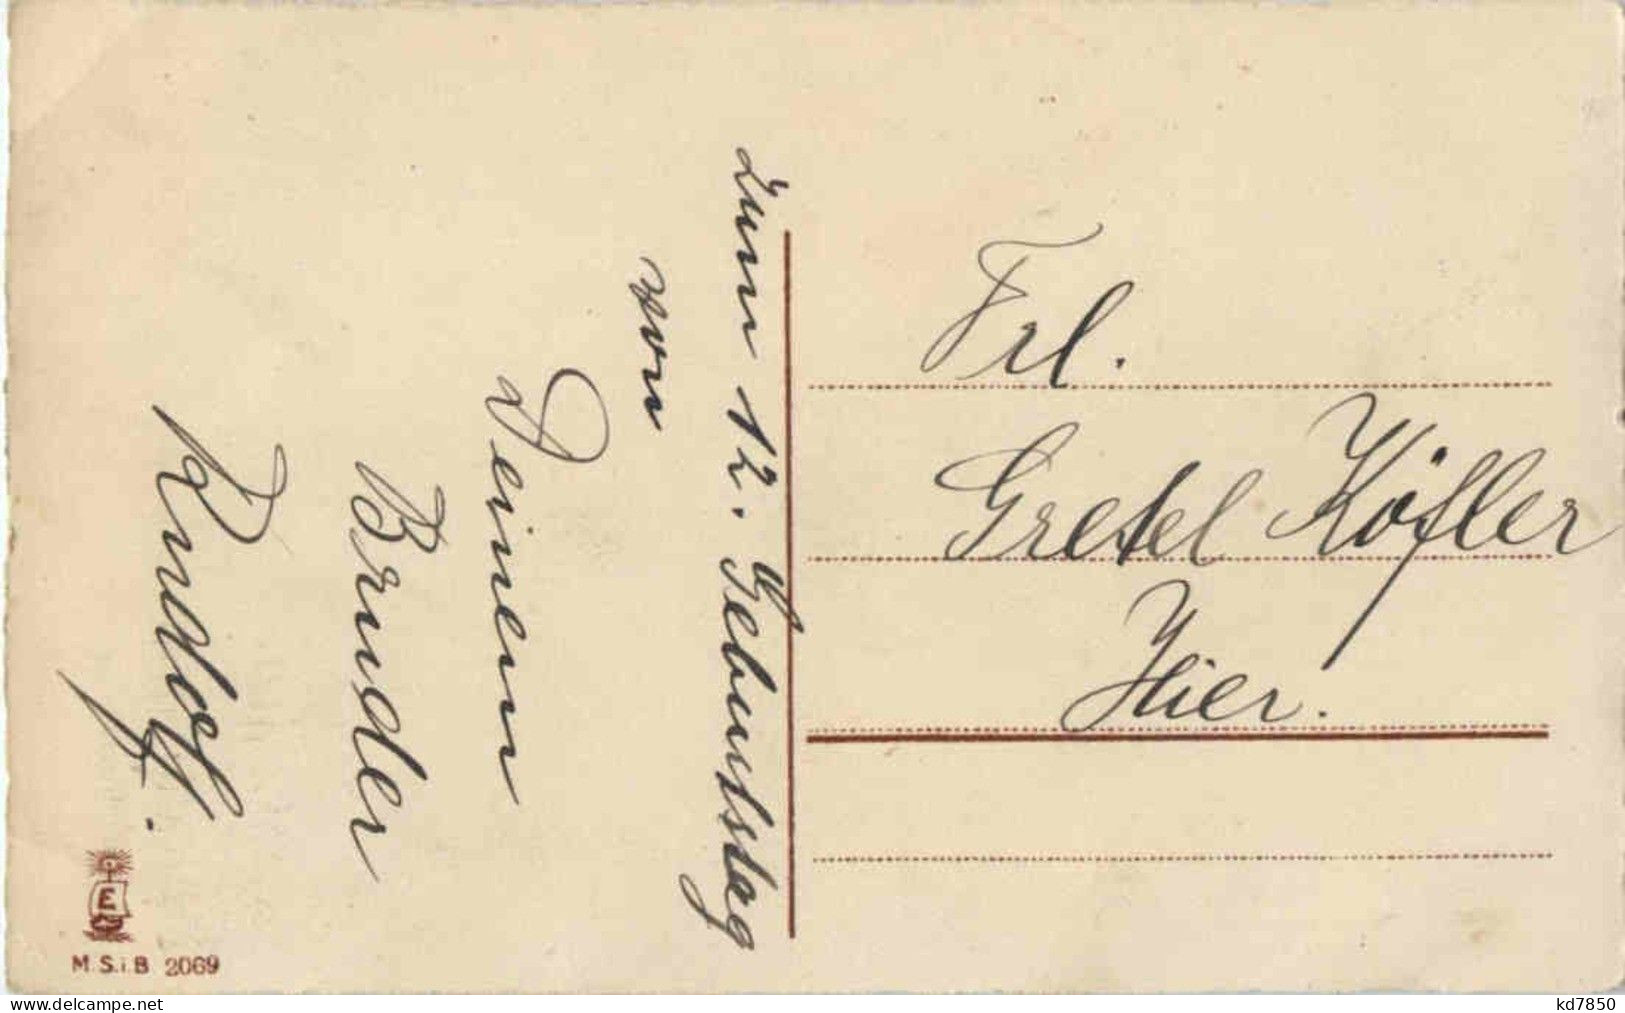 Zum 12. Geburtstag
von
Deinem
Bruder
Rudolf.
Frl.
Gretel Köfler
Hier.
E
M. S. i. B 2069
www.delcampe.net
kd7850